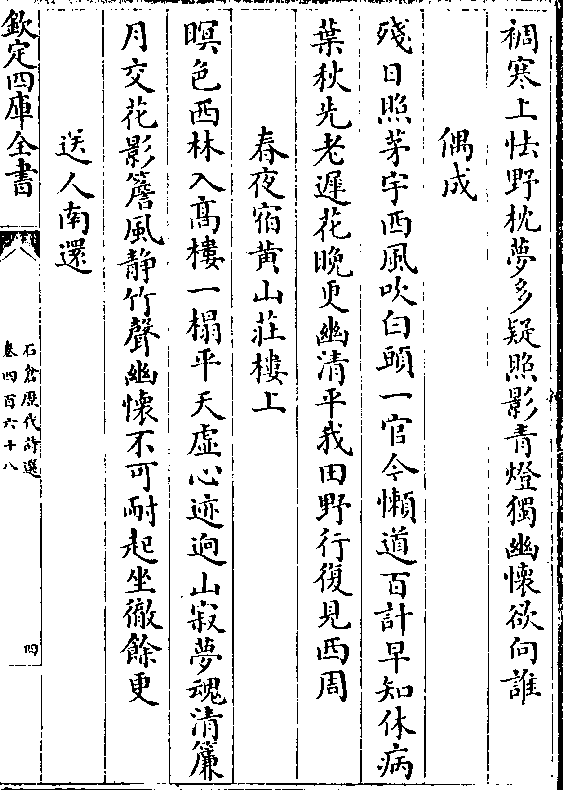 裯寒上怯野枕夢多疑照影青燈獨幽懐欲向誰
偶成
殘日照茅宇西風吹白頭一官今懶道百計早知休病
葉秋先老遲花晚更幽清平我田野行復見西周
春夜宿黄山莊樓上
暝色西林入高樓一榻平天虚心迹逈山寂夢魂清簾
月交花影簷風静竹聲幽懐不可耐起坐徹餘更
送人南還
欽定四庫全書
石倉歴代詩選
卷四百六十八
四